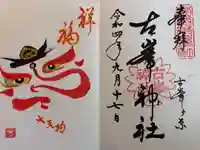 奉拝
古峯神社
令和四年九月十七日
祥福
大天狗